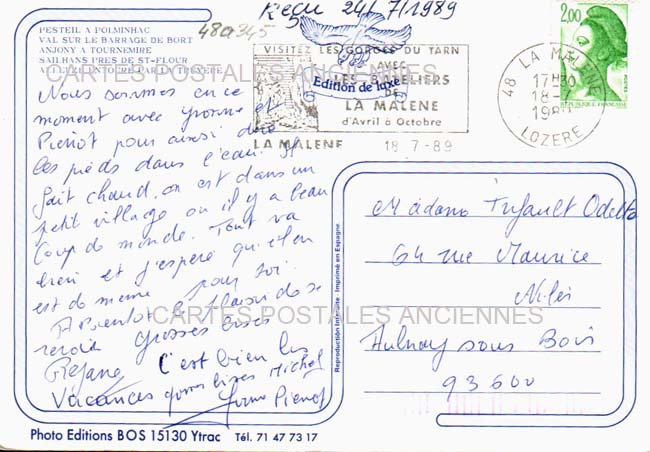 Reçu 24/7/1989
48a345
PESTEIL A POLMINHAC
VAL SUR LE BARRAGE DE BORT
ANJONY A TOURNEMIRE
SAILHANS PRES DE ST-FLOUR
CARTES POSTALES ANCIENNES
Edition de luxe
VISITEZ LES GORGES DU TARN
AVEC
LES BATELIERS
DE
LA MALENE
d'Avril à Octobre
LA MALENE 18-7-89
2,00
48 LA MALENE
17H30
18-7
LOZERE
Nous sommes en ce
moment avec Yvonne et
Pierrot pour ainsi dire
les pieds dans l'eau. Il
fait chaud, on est dans un
petit village ou il y a beau
coup de monde. Tout va
bien et j'espère qu'il en
est de meme pour toi.
A Bientot le plaisir de se
revoir Grosses bises
Rejane C'est bien les
Vacances grosses bises Michel
Yvonne Pierrot
Madame Odette
64 rue Maurice
Nilès
Aulnay sous Bois
93600
CARTES POSTALES ANCIENNES
Reproduction Interdite Imprimé en Espagne
Photo Editions BOS 15130 Ytrac Tél. 71 47 73 17